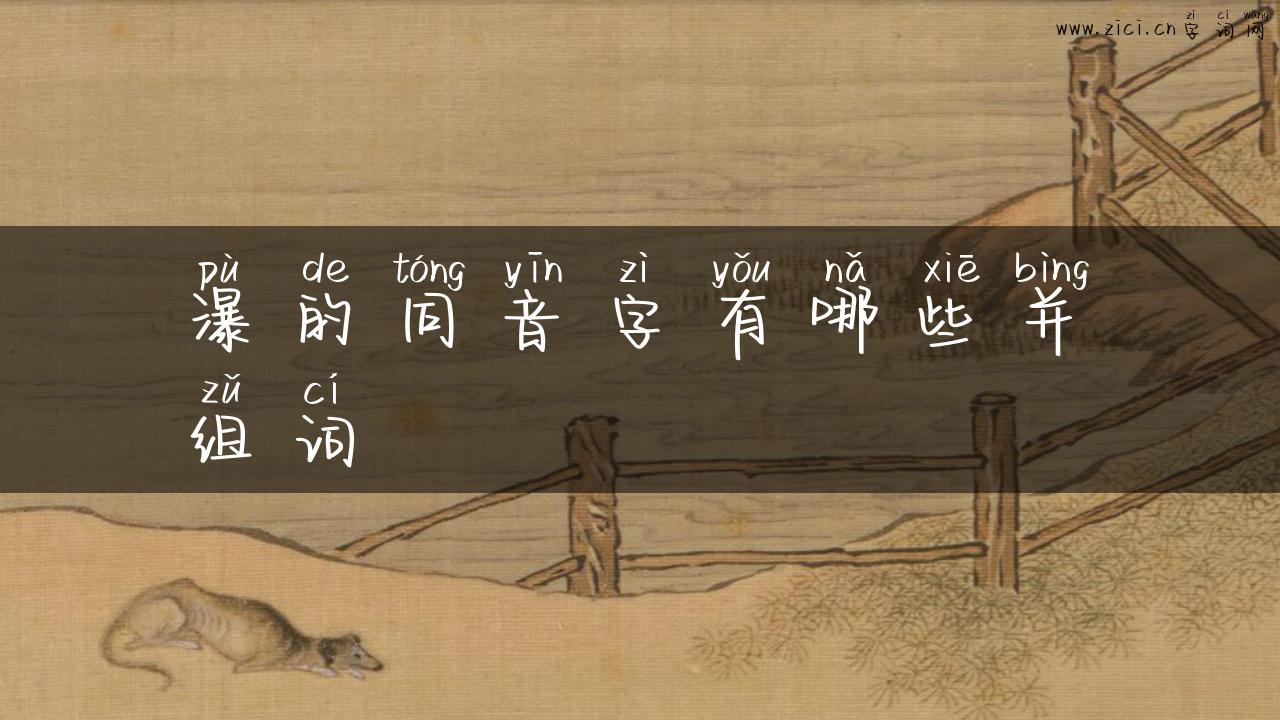 zì cí wǎng
www.zici.cn 字词网
pù de tóng yīn zì yǒu nǎ xiē bìng
瀑的同音字有哪些并
zǔ cí
组词